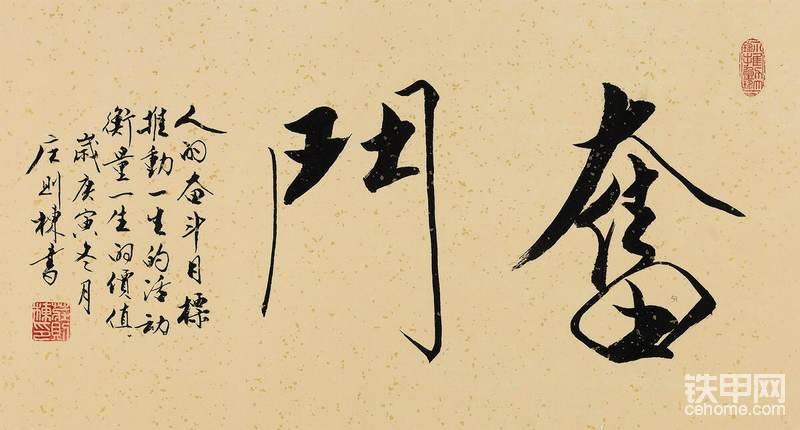 奮鬥
人的奋斗目標
推動一生的活动
衡量一生的價值
歲庚寅冬月
庄则棟書
铁甲网
cehome.com